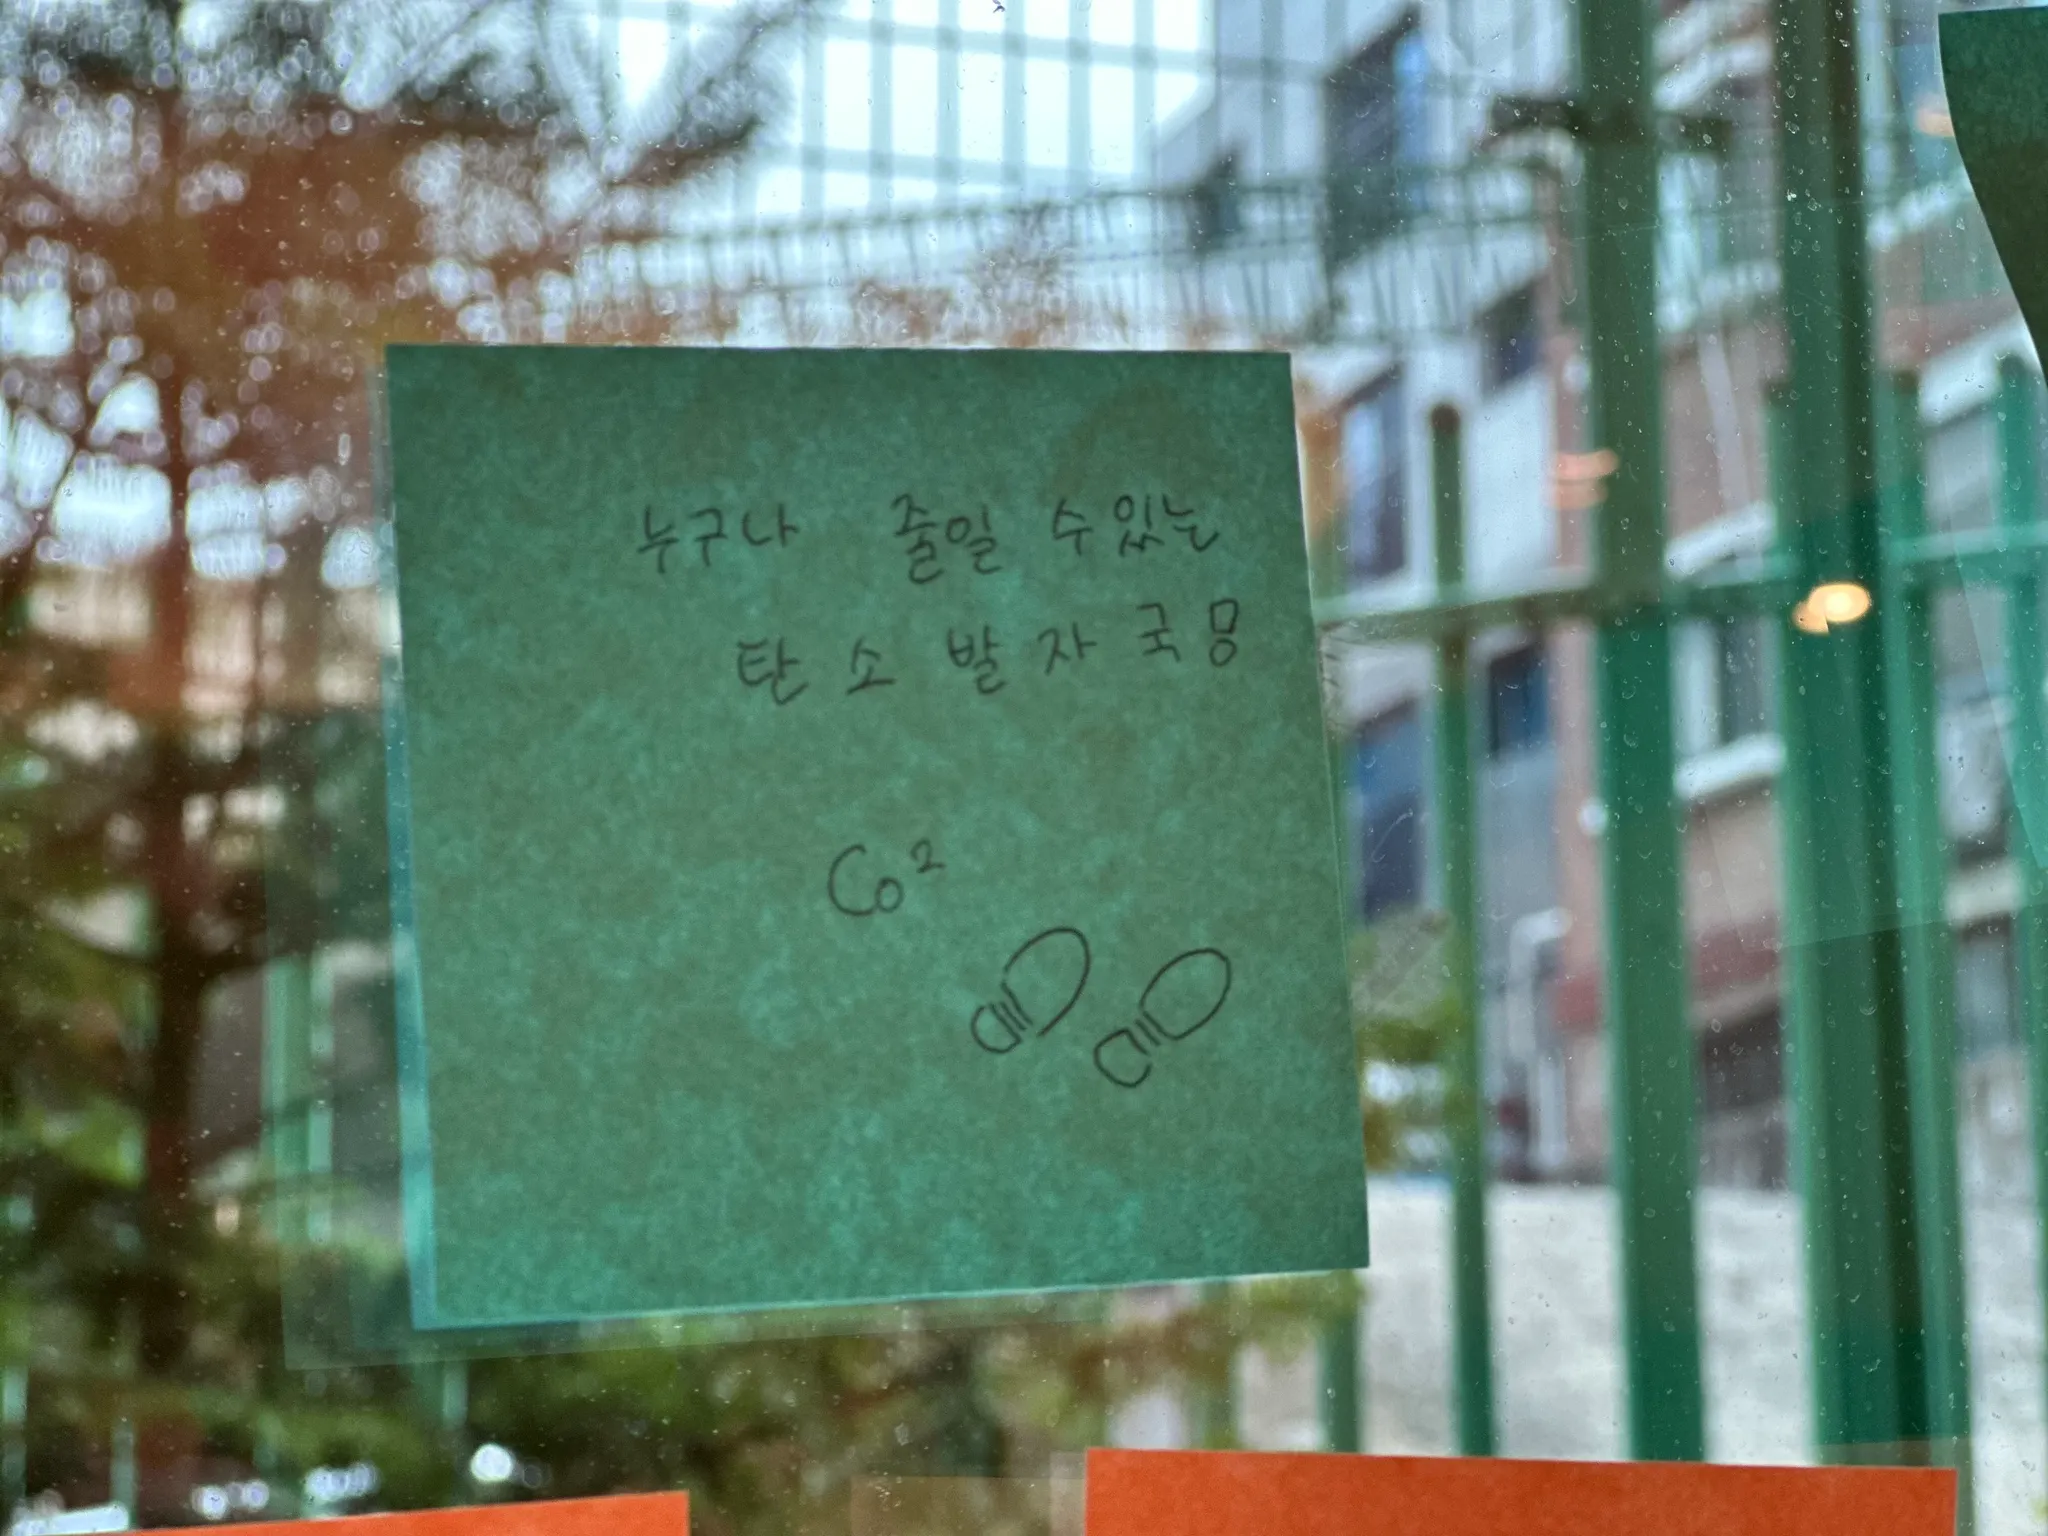 누구나 줄일 수 있는
탄소발자국 몽
Co²